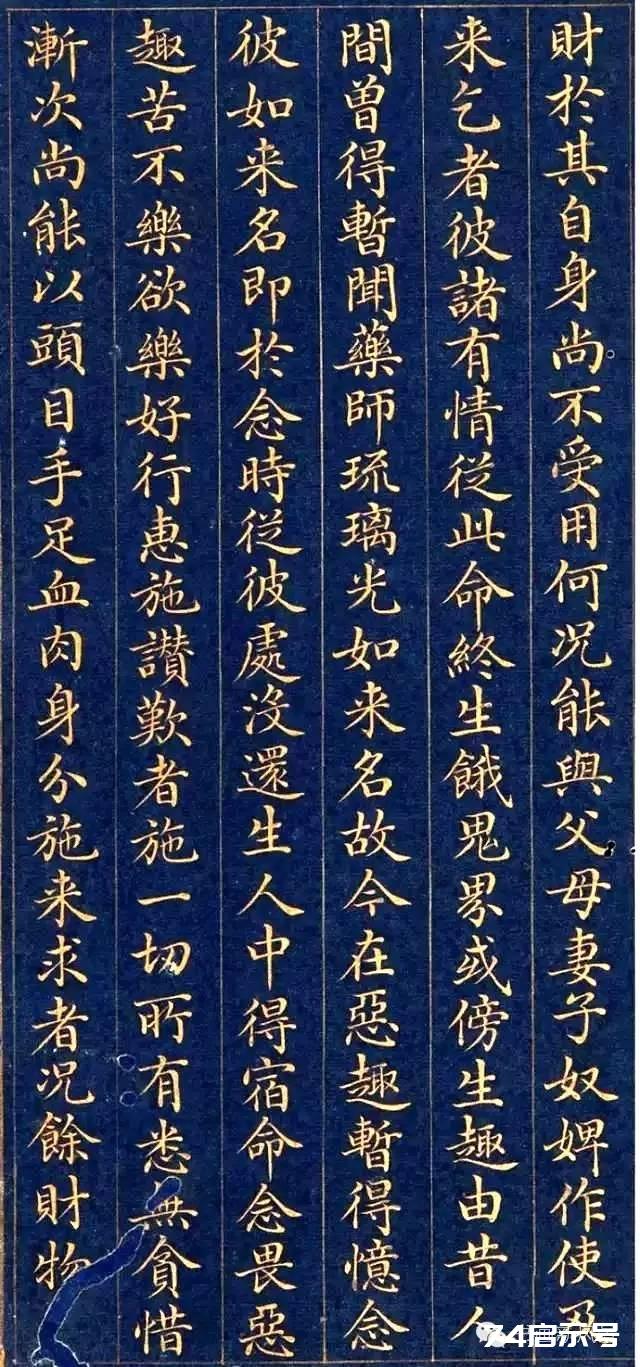 財於其自身尚不受用何况能與父母妻子奴婢作使及
来乞者彼諸有情從此命終生餓鬼界或傍生趣由昔人
間曽得暫聞藥師琉璃光如来名故今在惡趣暫得憶念
彼如来名即於念時從彼處没還生人中得宿命念畏惡
趣苦不樂欲樂好行惠施讃歎者施一切所有悉無貪惜
漸次尚能以頭目手足血肉身分施来求者况餘財物
74启示号